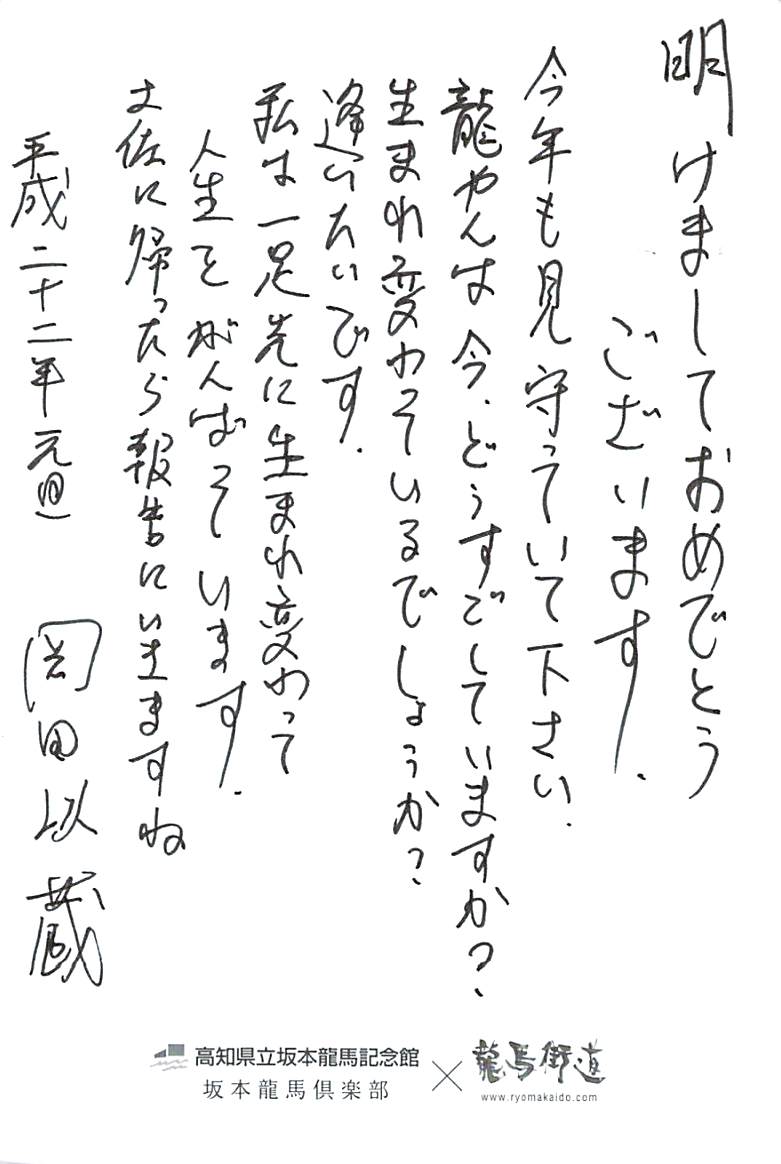 明けましておめでとう
ございます.
今年も見守っていて下さい.
龍やんは今、どうすごしていますか?
生まれ変わっているでしょうか?
逢いたいです.
私は一足先に生まれ変わって
人生をがんばっています.
土佐に帰ったら報告にいきますね
平成二十二年元旦 岡田以蔵
高知県立坂本龍馬記念館
坂本龍馬倶楽部
×
龍馬街道
www.ryomakaido.com